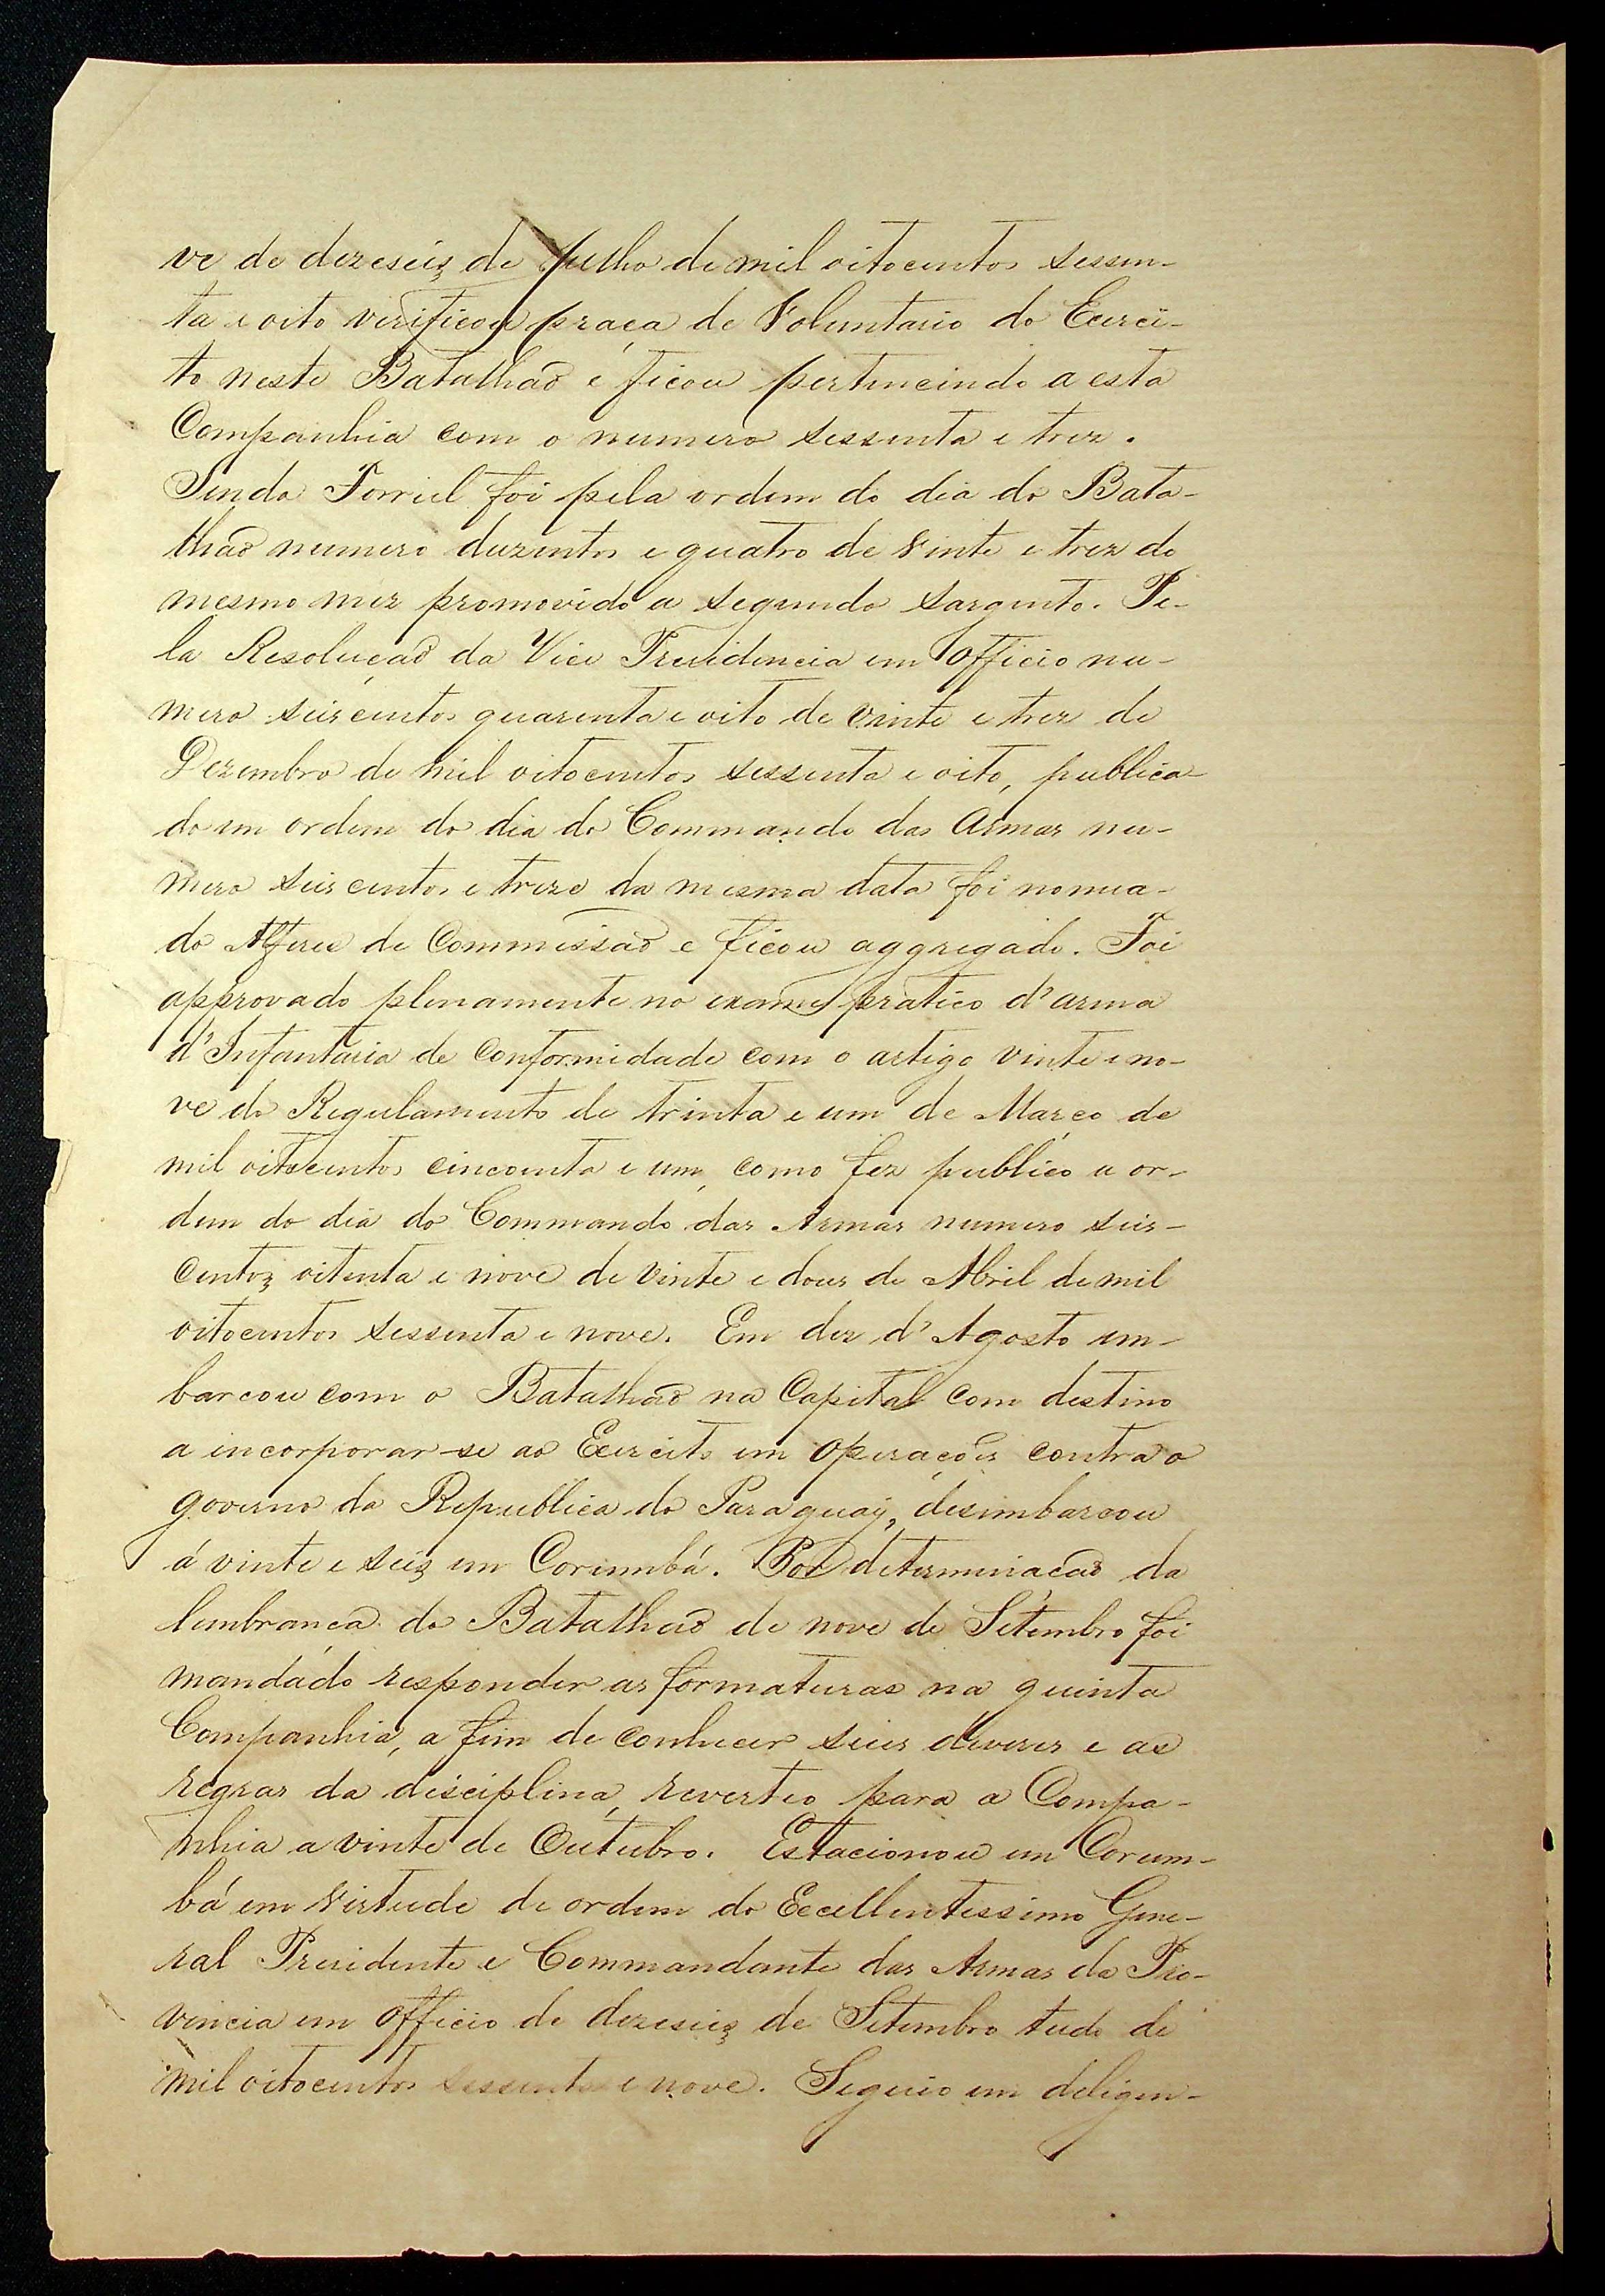 ve de dezeseis de Julho de mil oitocentos sessen-
ta e oito verificou praça de Voluntario do Exerci-
to neste Batalhaõ e ficou pertencindo a esta
Companhia com o numero sessenta e trez.
Sendo Forriel foi pela ordem do dia do Bata-
lhaõ numero duzentos e quatro de vinte e trez do
mesmo mez promovido a segundo sargento. Pe-
la Resoluçaõ da Vice Presidencia em Officio nu-
mero seiscentos quarenta e oito de vinte e trez de
Dezembro de mil oitocentos sessenta e oito, publica-
do em ordem do dia do Commando das Armas nu-
mero seis centos e treze da mesma data foi nomea-
do Alferes de Commissaõ e ficou aggregado. Foi
approvado plenamente no exame pratico d'arma
d'Infantaria de conformidade com o artigo vinte e no-
ve do Regulamento de trinta e um de Março de
mil oitocentos cincoenta e um, como fez publico a or-
dem do dia do Commando das Armas numero seis-
centos oitenta e nove de vinte e dous de Abril de mil
oitocentos sessenta e nove. Em dez d'Agosto em-
barcou com o Batalhaõ na Capital com destino
a incorporar-se ao Exercito em operações contra o
governo da Republica do Paraguay, desimbarcou
á vinte e seis em Corumbá. Por determinaçaõ da
lembrança do Batalhaõ de nove de Setembro foi
mandado responder as formaturas na quinta
Companhia, a fim de conhecer seus deveres e as
regras da disciplina, reverteo para a Compa-
nhia a vinte de Outubro. Estacionou em Corum-
bá em virtude de ordem do Excellentissimo Gene-
ral Presidente e Commandante das Armas da Pro-
vincia em officio de dezeseis de Setembro tudo de
mil oitocentos sessenta e nove. Seguio em deligen-